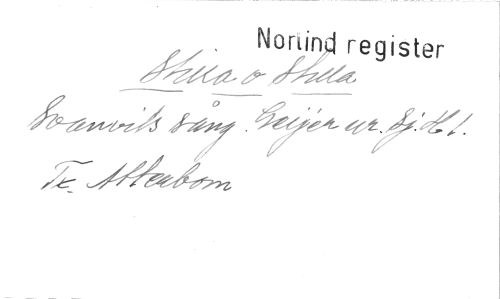 Norlind register
Stilla o stilla
Svanvits sång. Geijer ur. Sj. H 1.
Tx. Atterbom